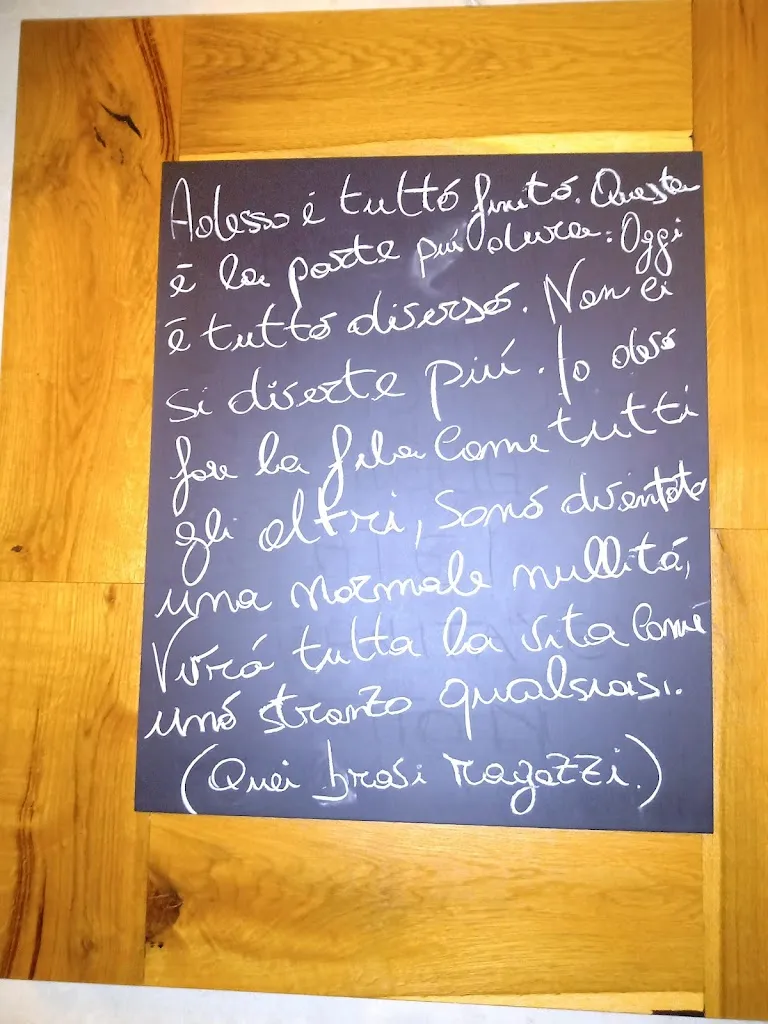 Adesso é tuttó finitó. Questa
é la parte piú dura: Oggi
é tuttó diversó. Non ci
si diverte piú. Io devó
fare la fila come tutti
gli altri, sonó diventato
una normale nullitá,
Vivró tutta la vita come
unó stronzo qualsiasi.
(Quei bravi ragazzi.)